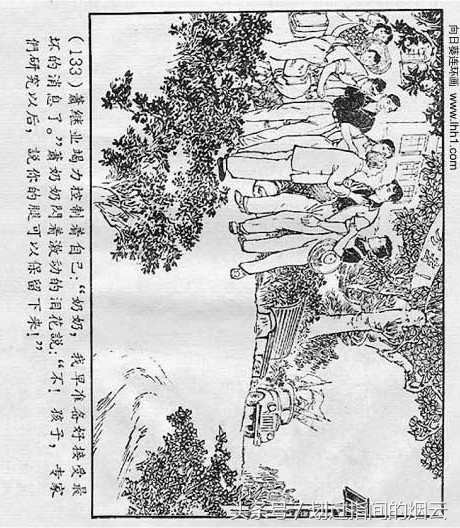 向日葵连环画 www.lhh1.com
(133)萧继业竭力控制着自己:“奶奶,我早准备好接受最
坏的消息了。”萧奶奶閃着激动的泪花說:“不!孩子,专家
們研究以后,說你的腿可以保留下来!”
头条号/划过指间的烟云